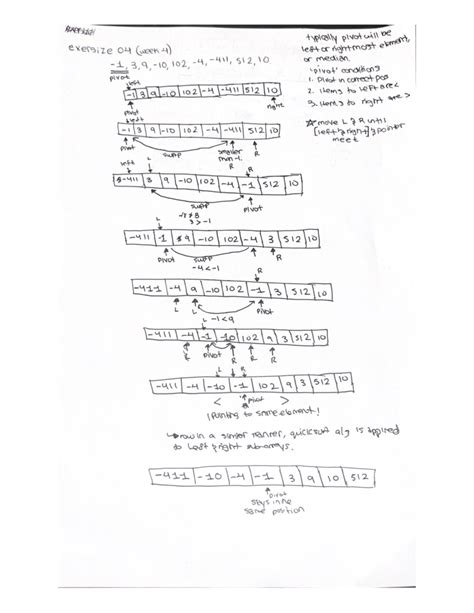 exersize 04 (week 4)
-1, 3, 9, -10, 102, -4, -411, 512, 10
typically pivot will be
left or rightmost element,
or median.
'pivot' conditions
1. Pivot in correct pos
2. items to left are <
3. items to right are >
☆ move L & R until
[left & right] pointer
meet
pivot
left
-1 3 9 -10 102 -4 -411 512 10
right
pivot
left
-1 3 9 -10 102 -4 -411 512 10
pivot
swap
smaller
than -1.
R
left
L
R
-411 3 9 -10 102 -4 -1 512 10
swap
3 > -1
pivot
L
R
-411 -1 9 -10 102 -4 3 512 10
pivot
swap
-4 < -1
R
-411 -4 9 -10 102 -1 3 512 10
L
L
-1 < 9
pivot
L
R
-411 -4 -1 -10 102 9 3 512 10
pivot
R
R
R
L
R
-411 -4 -10 -1 102 9 3 512 10
< pivot >
! Pointing to same element!
now in a similar manner, quicksort alg is applied
to left & right subarrays.
-411 -10 -4 -1 3 9 10 512
pivot
stays in the
same position